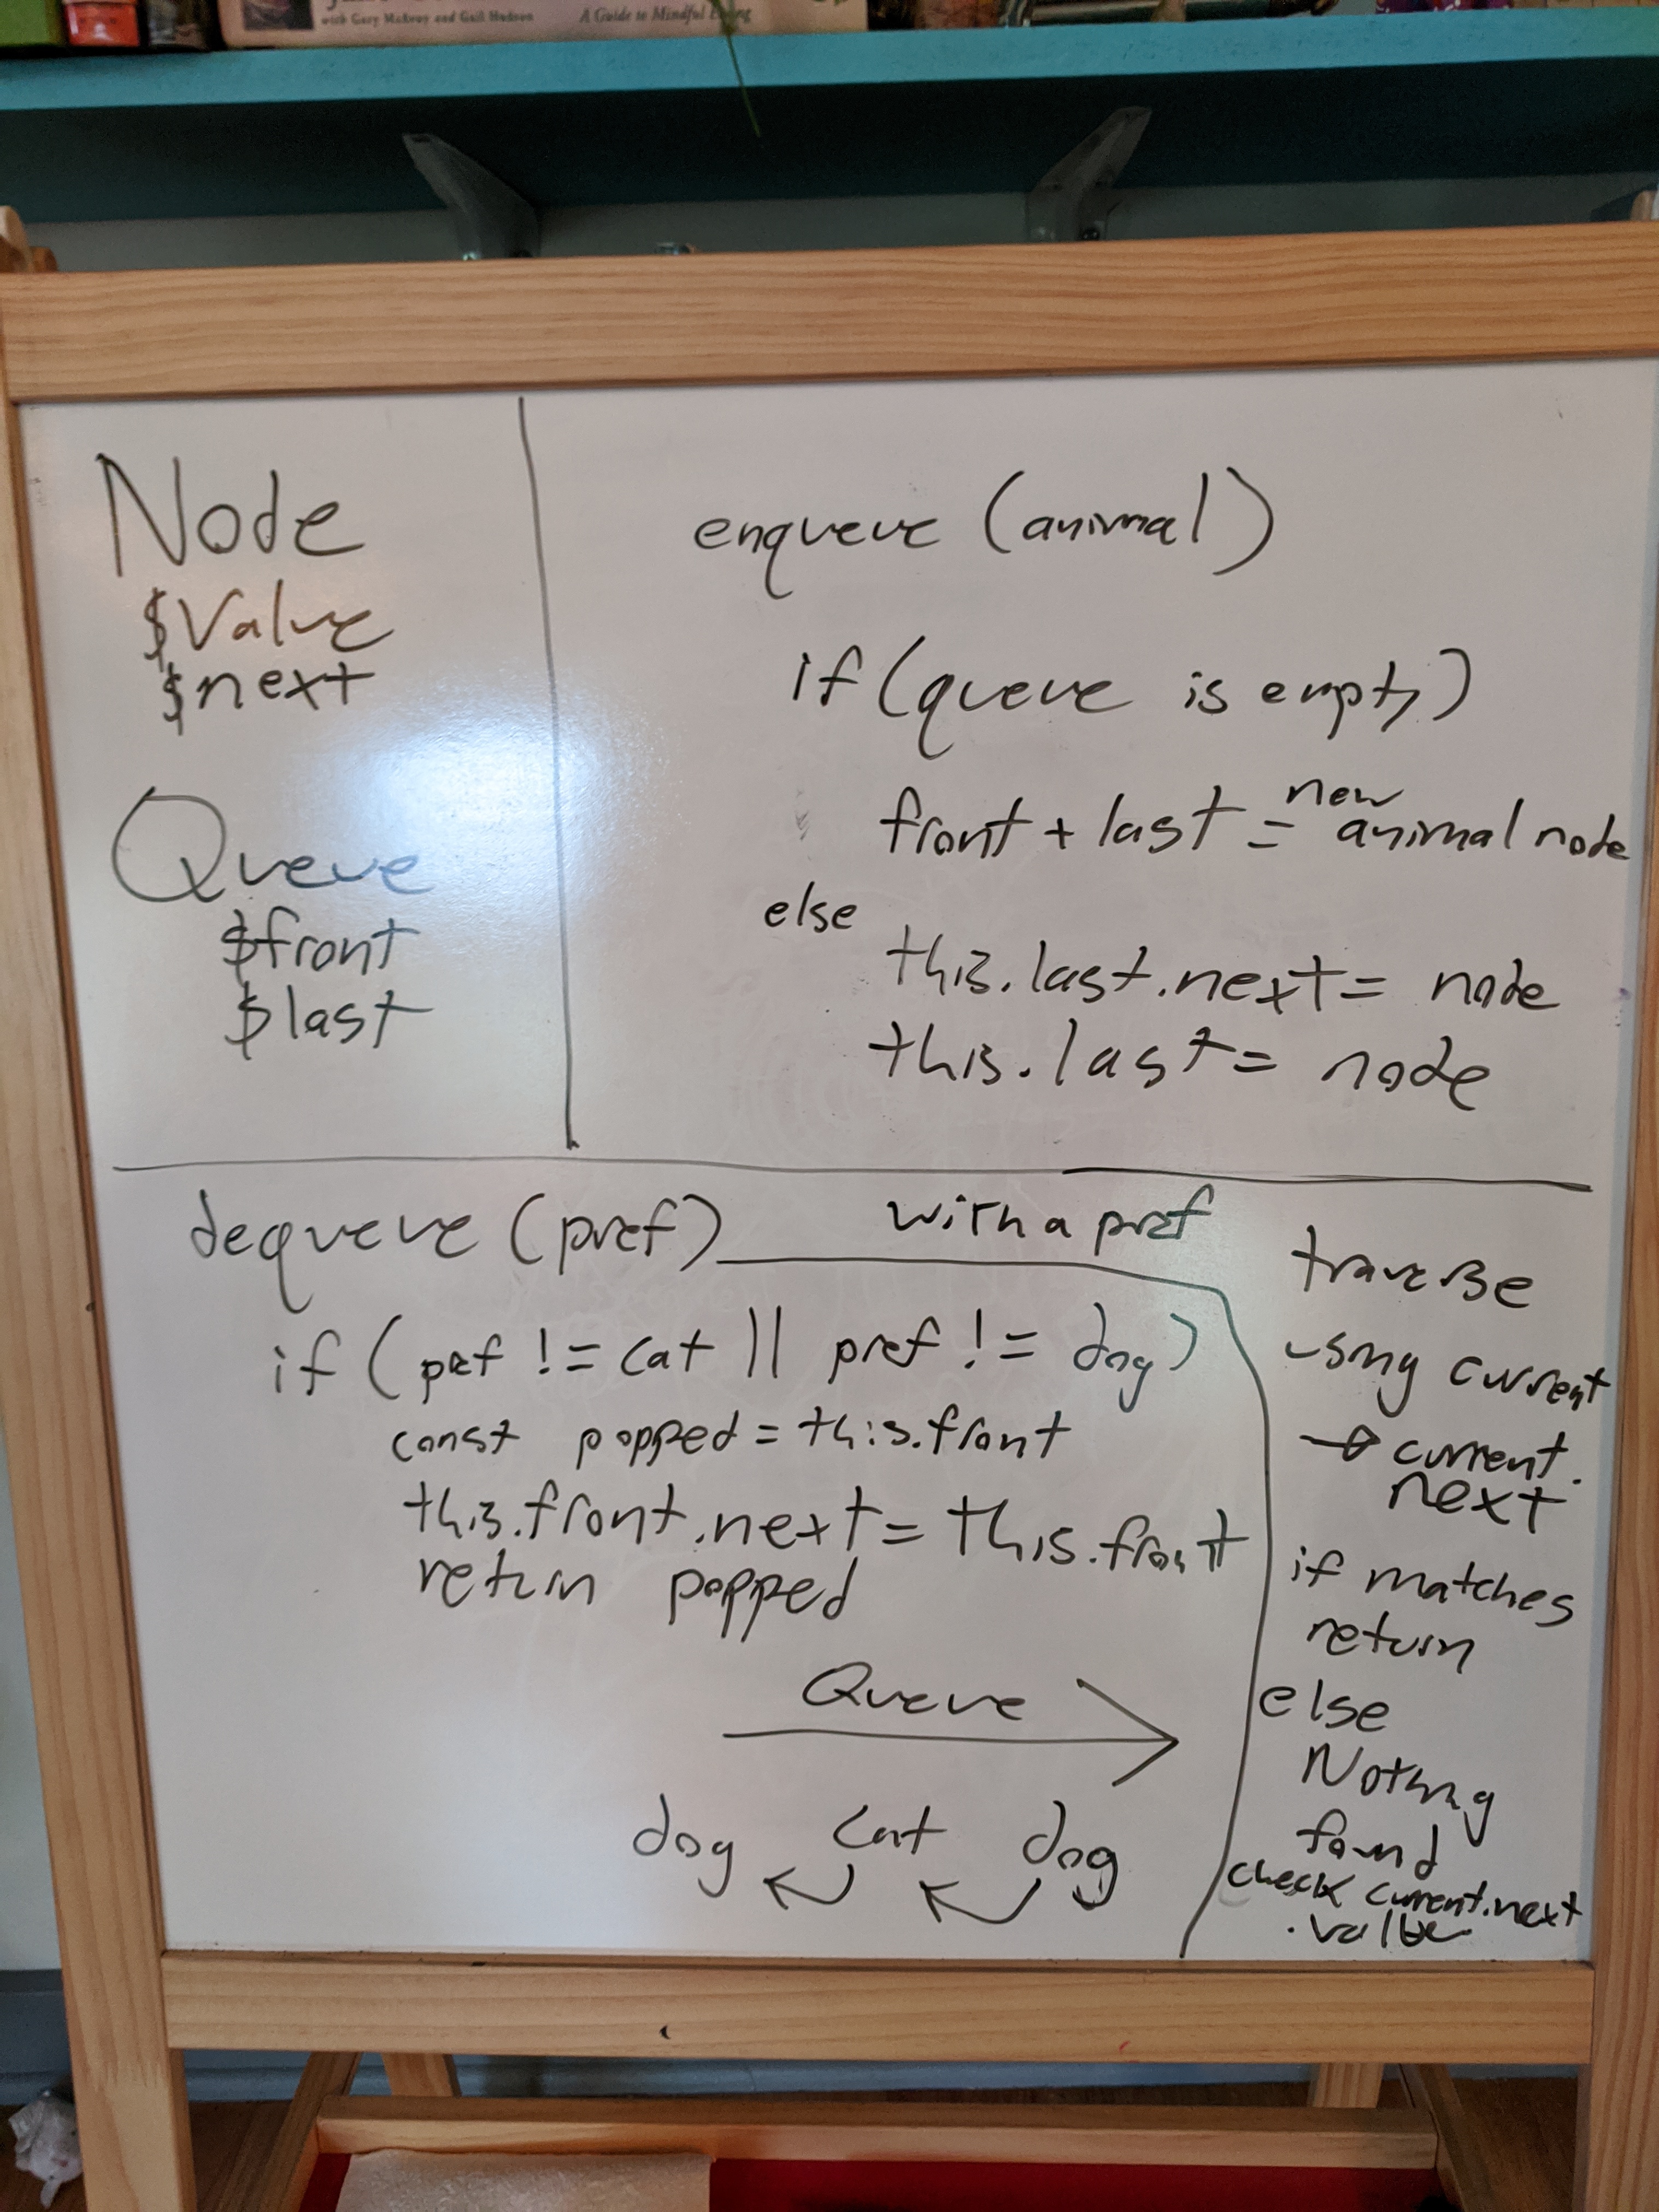 with Gary McAvoy and Gail Hudson
A Guide to Mindful Eating
Node
$Value
$next
Queue
$front
$last
enqueue (animal)
if (queue is empty)
front + last = new animal node
else
this.last.next = node
this.last = node
dequeue (pref)
if (pref != cat || pref != dog)
const popped = this.front
this.front.next = this.front
return popped
Queue
dog cat dog
with a pref
traverse
using current
→ current.
next
if matches
return
else
Nothing
found
check current.next
.value